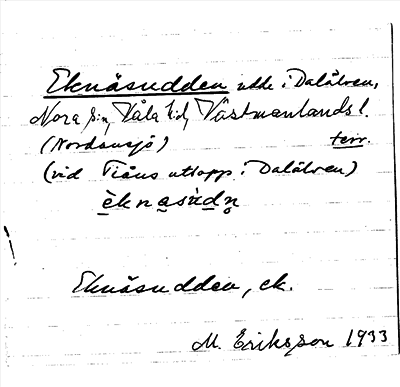 Eknäsudden udde i Dalälven,
Nora sn, Våla hd, Västmanlands l.
(Nordansjö) terr.
(vid Tiåns utlopp i Dalälven)
èknasùdn̥
Eknäsudden, ek.
M. Eriksson 1933